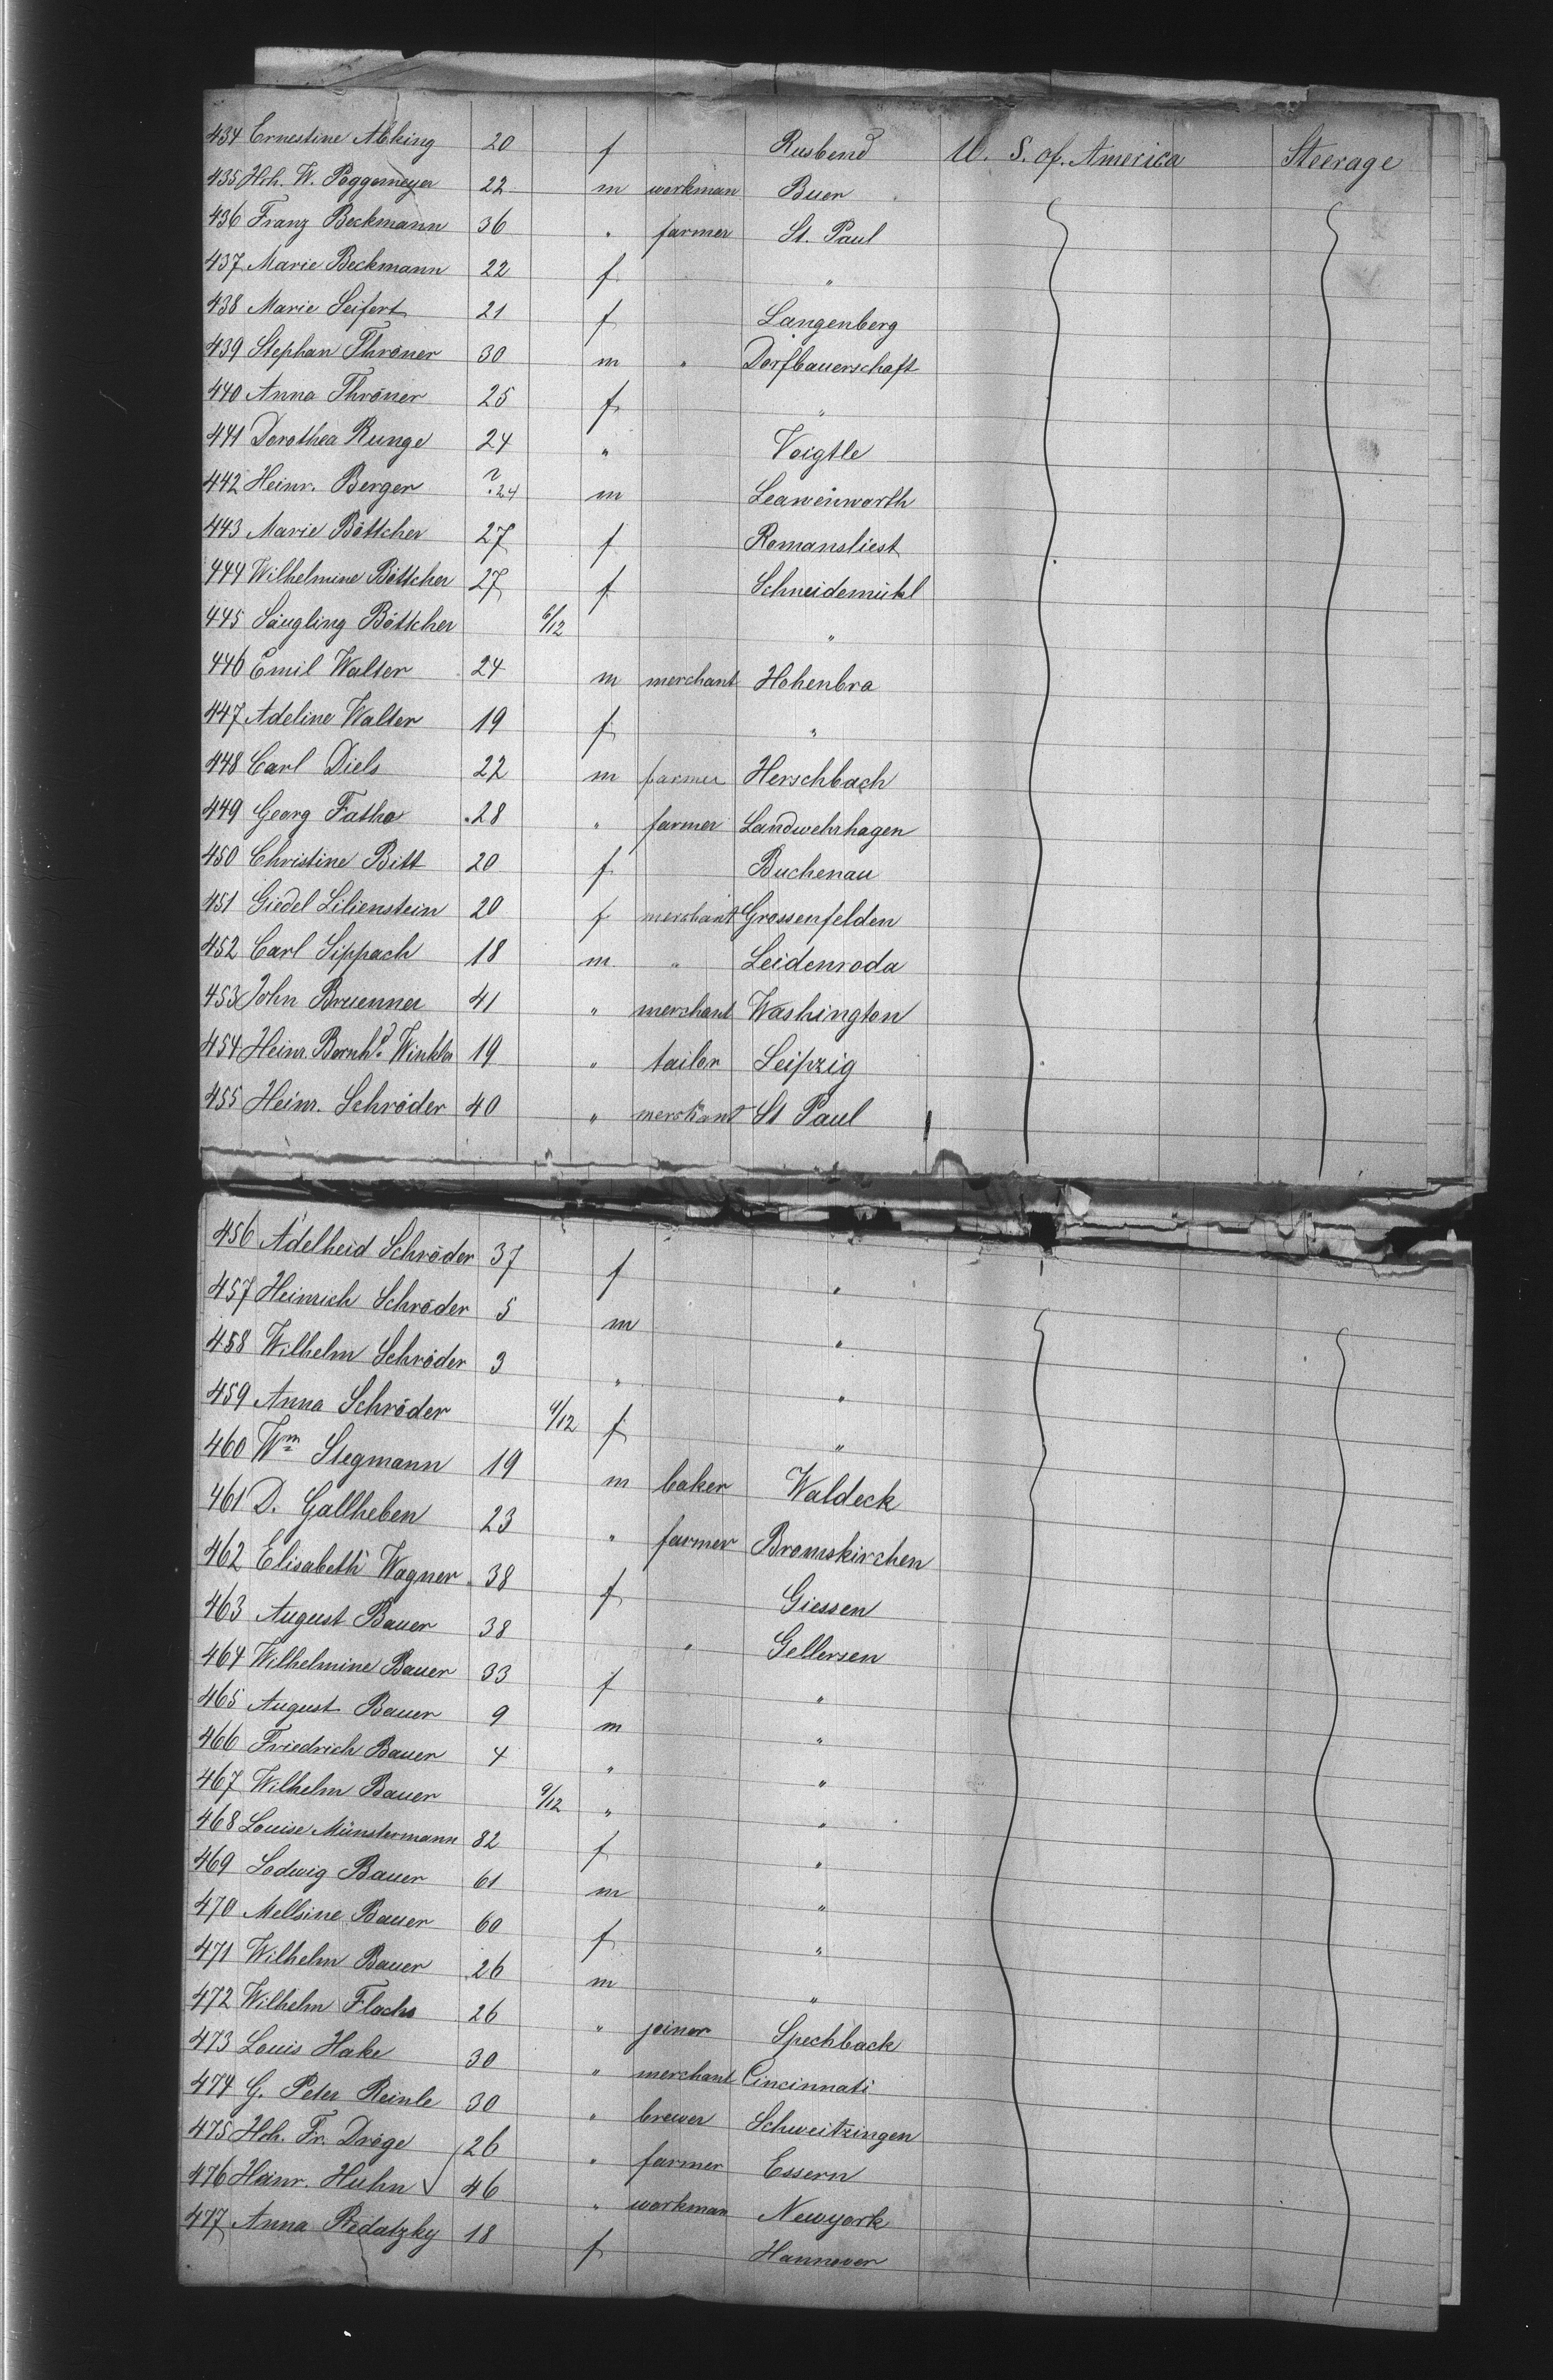 434 Ernestine Abking 20 f Rusbend U. S. of. America Steerage
435 Hch. W. Poggemeyer 22 m workman Buer
436 Franz Beckmann 36 " farmer St. Paul
437 Marie Beckmann 22 f "
438 Marie Seifert 21 f Langenberg
439 Stephan Thröner 30 m " Dorfbauerschaft
440 Anna Thröner 25 f "
441 Dorothea Runge 24 " Voigtle
442 Heinr. Berger 24 m Leawenworth
443 Marie Böttcher 27 f Romansliest
444 Wilhelmine Böttcher 27 f Schneidemühl
445 Säugling Böttcher 6/12 "
446 Emil Walter 24 m merchant Hohenbra
447 Adeline Walter 19 f "
448 Carl Diels 22 m farmer Herschbach
449 Georg Fatho 28 " farmer Landwehrhagen
450 Christine Bitt 20 f Buchenau
451 Giedel Lilienstein 20 f merchant Grossenfelden
452 Carl Sippach 18 m " Leidenroda
453 John Bruenner 41 " merchant Washington
454 Heinr. Bernhd. Winkler 19 " tailor Leipzig
455 Heinr. Schröder 40 " merchant St Paul
456 Adelheid Schröder 37 f "
457 Heinrich Schröder 5 m "
458 Wilhelm Schröder 3 " "
459 Anna Schröder /12 f "
460 Wm Stegmann 19 m baker Waldeck
461 D. Gallheben 23 " farmer Bromskirchen
462 Elisabeth Wagner 38 f Giessen
463 August Bauer 38 " Gellersen
464 Wilhelmine Bauer 33 f "
465 August Bauer 9 m "
466 Friedrich Bauer 4 " "
467 Wilhelm Bauer 9/12 " "
468 Louise Münstermann 82 f "
469 Lodwig Bauer 61 m "
470 Mellsine Bauer 60 f "
471 Wilhelm Bauer 26 m "
472 Wilhelm Flachs 26 " joiner Spechback
473 Louis Hake 30 " merchant Cincinnati
474 G. Peter Reinle 30 " brewer Schweitzingen
475 Hch. Fr. Dröge 26 " farmer Essern
476 Heinr. Huhn 46 " workman Newyork
477 Anna Redatzky 18 f Hannover